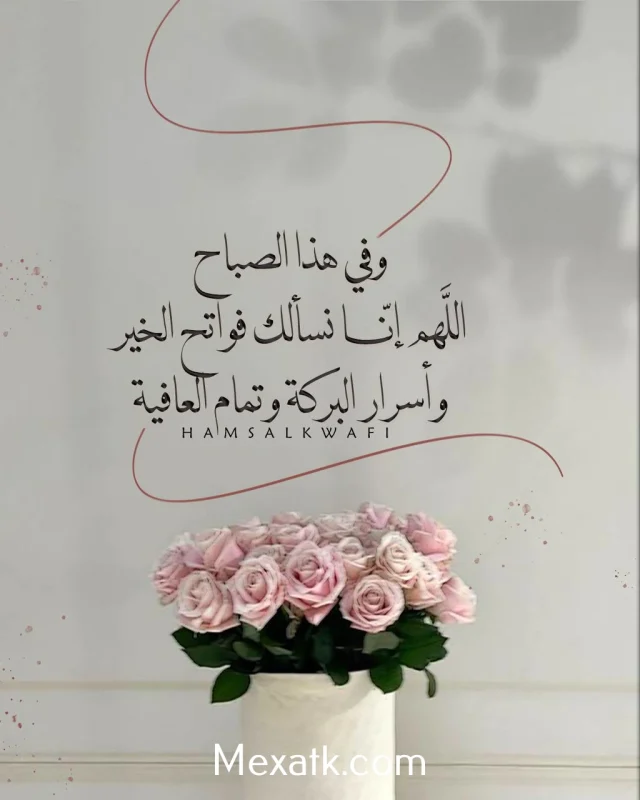 وفي هذا الصباح
اللَّهم إنّا نسألك فواتح الخير
وأسرار البركة وتمام العافية
HAMSALKWAFI
Mexatk.com